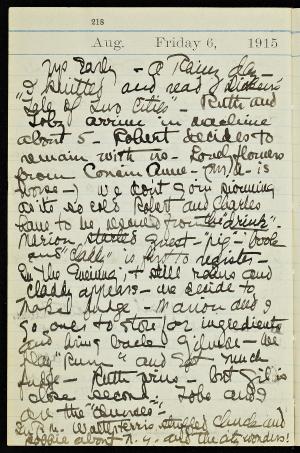 218
Aug. Friday 6, 1915
Up Early - A Rainy day -
I knitted and read Dickens'
"Tale of Two Cities" - Ruth and
Toby arrive in machine
about 5 - Robert decides to
remain with us - Lovely flowers
from Cousin Anne - (M. is
worse -) We don't go in swimming
as its so cold Robert and Charles
have to be rescued from "the drink"
Marion started guest - pig - book
and "Chll" is first to register -
In the Evening it still rains and
Claddy appears - We decide to
make fudge - Marion and I
go ones to store for ingredients
and bring back Gilmore - We
play "Rum" and eat much
fudge - Ruth wins - but Gil is
close second. Tobs and I
are the "chumps" -
Walter Ferris stuffed chuds and
about N.Y. and the city wonders!